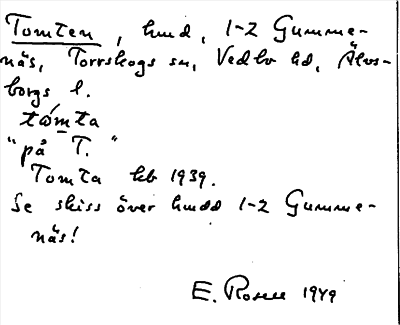 Tomten, hmd, 1-2 Gumme-
näs, Torrskogs sn, Vedbo hd, Älvs-
borgs l.
tåmta
"på T."
Tomta kb 1939.
Se skiss över hmdd 1-2 Gumme-
näs!
E. Rosell 1949